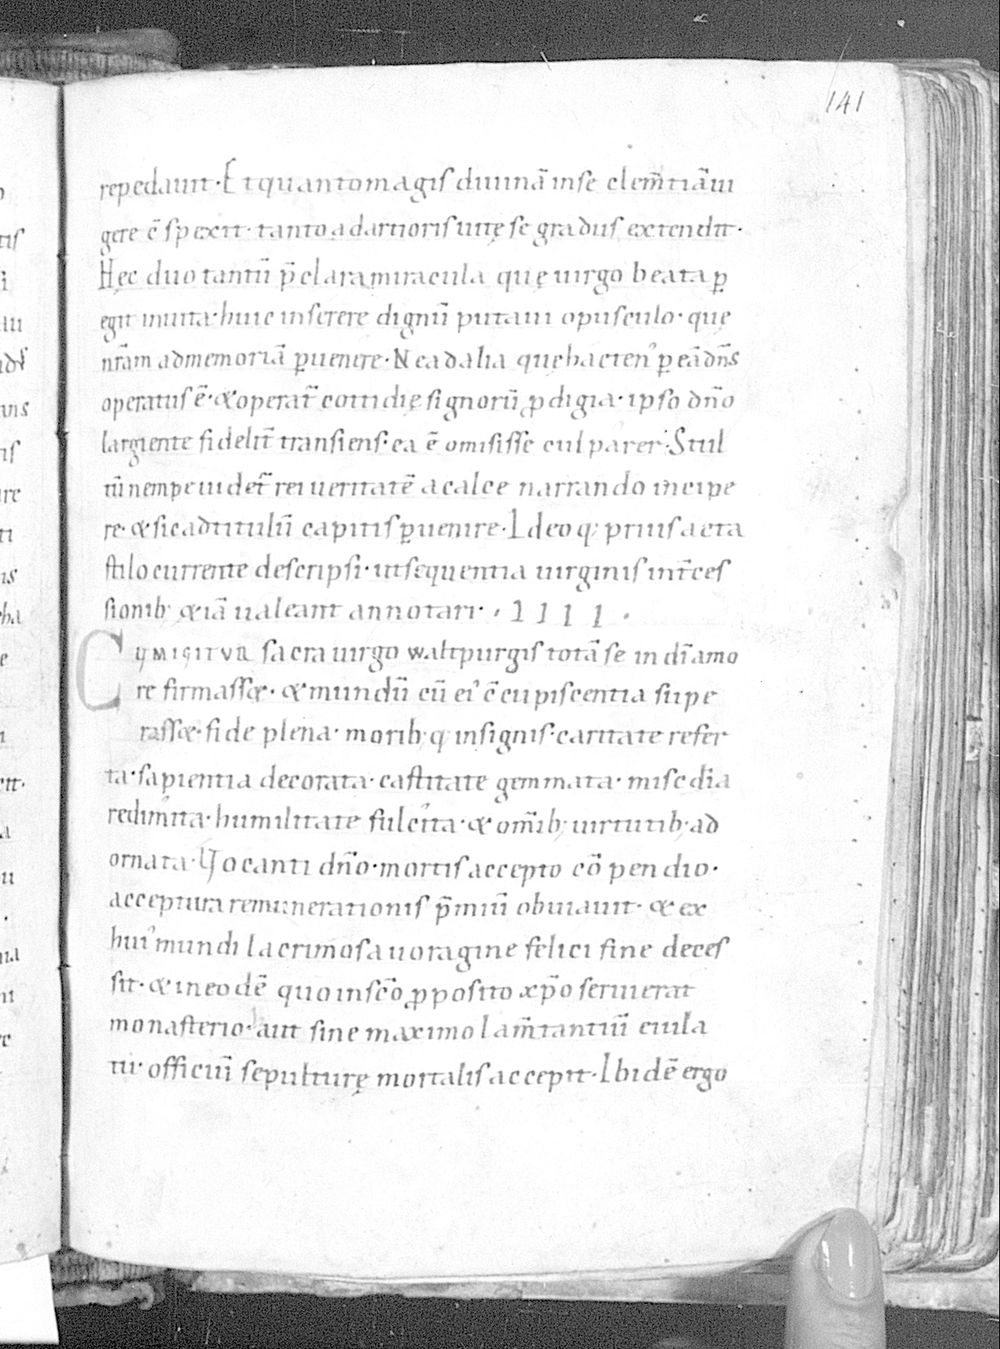 141
repedauit·Et quanto magis diuinā in se clem̄tiā ui
gere c̄spexit· tanto ad artioris uitę se gradus extendit·
Hęc duo tantū p̄clara miracula quę uirgo beata ꝑ
egit inuita· huic inserere dignū putaui opusculo· quę
nr̄am ad memoriā ꝑuenere· Ne ad alia quę hacten᾽ ꝑ eā dn̄s
operatus ē· & operat᷑ cottidię signorū ꝓdigia· ipso dn̄o
largiente fidelit᷑ transiens· ea ē omisisse culparer· Stul
tū nempe uidet᷑ rei ueritatē a calce narrando incipe
re· & sic ad titulū capitis ꝑuenire· Ideoq; prius acta
stilo currente descripsi· ut sequentia uirginis int᷑ces
sionib; & iā ualeant annotari· · IIII ·
CUM IGITUR sacra uirgo waltpurgis totā se in dī amo
re firmass&· & mundū cū ei᾽ c̄cupiscentia supe
rass&· fide plena· morib; q; insignis· caritate refer
ta· sapientia decorata· castitate gemmata· misc̄dia
redimita· humilitate fulcita· & om̄ib; uirtutib; ad
ornata· Vocanti dn̄o· mortis accepto cōpendio·
acceptura remunerationis p̄miū obuiauit· & ex
hui᾽ mundi lacrimosa uoragine felici fine deces
sit· & in eodē quo in sc̄o ꝓposito xp̄o seruierat
monasterio· haut sine maximo lam̄tantiū eiula
tu· officiū sepulturę mortalis accepit· Ibidē ergo